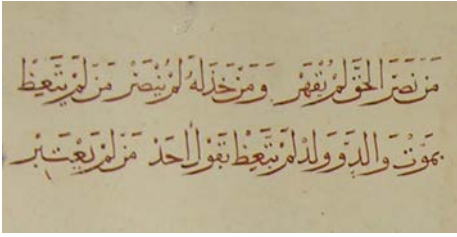 مَنْ نَصَرَ الحَقَّ لَمْ يُقْهَرْ وَمَنْ خَذَلَهُ لَمْ يُنْصَرْ مَنْ لَمْ يَتَّعِظْ
بِمَوْتِ وَالِدٍ وَوَلَدٍ لَمْ يَتَّعِظْ بِقَوْلِ أَحَدٍ مَنْ لَمْ يَعْتَبِرْ